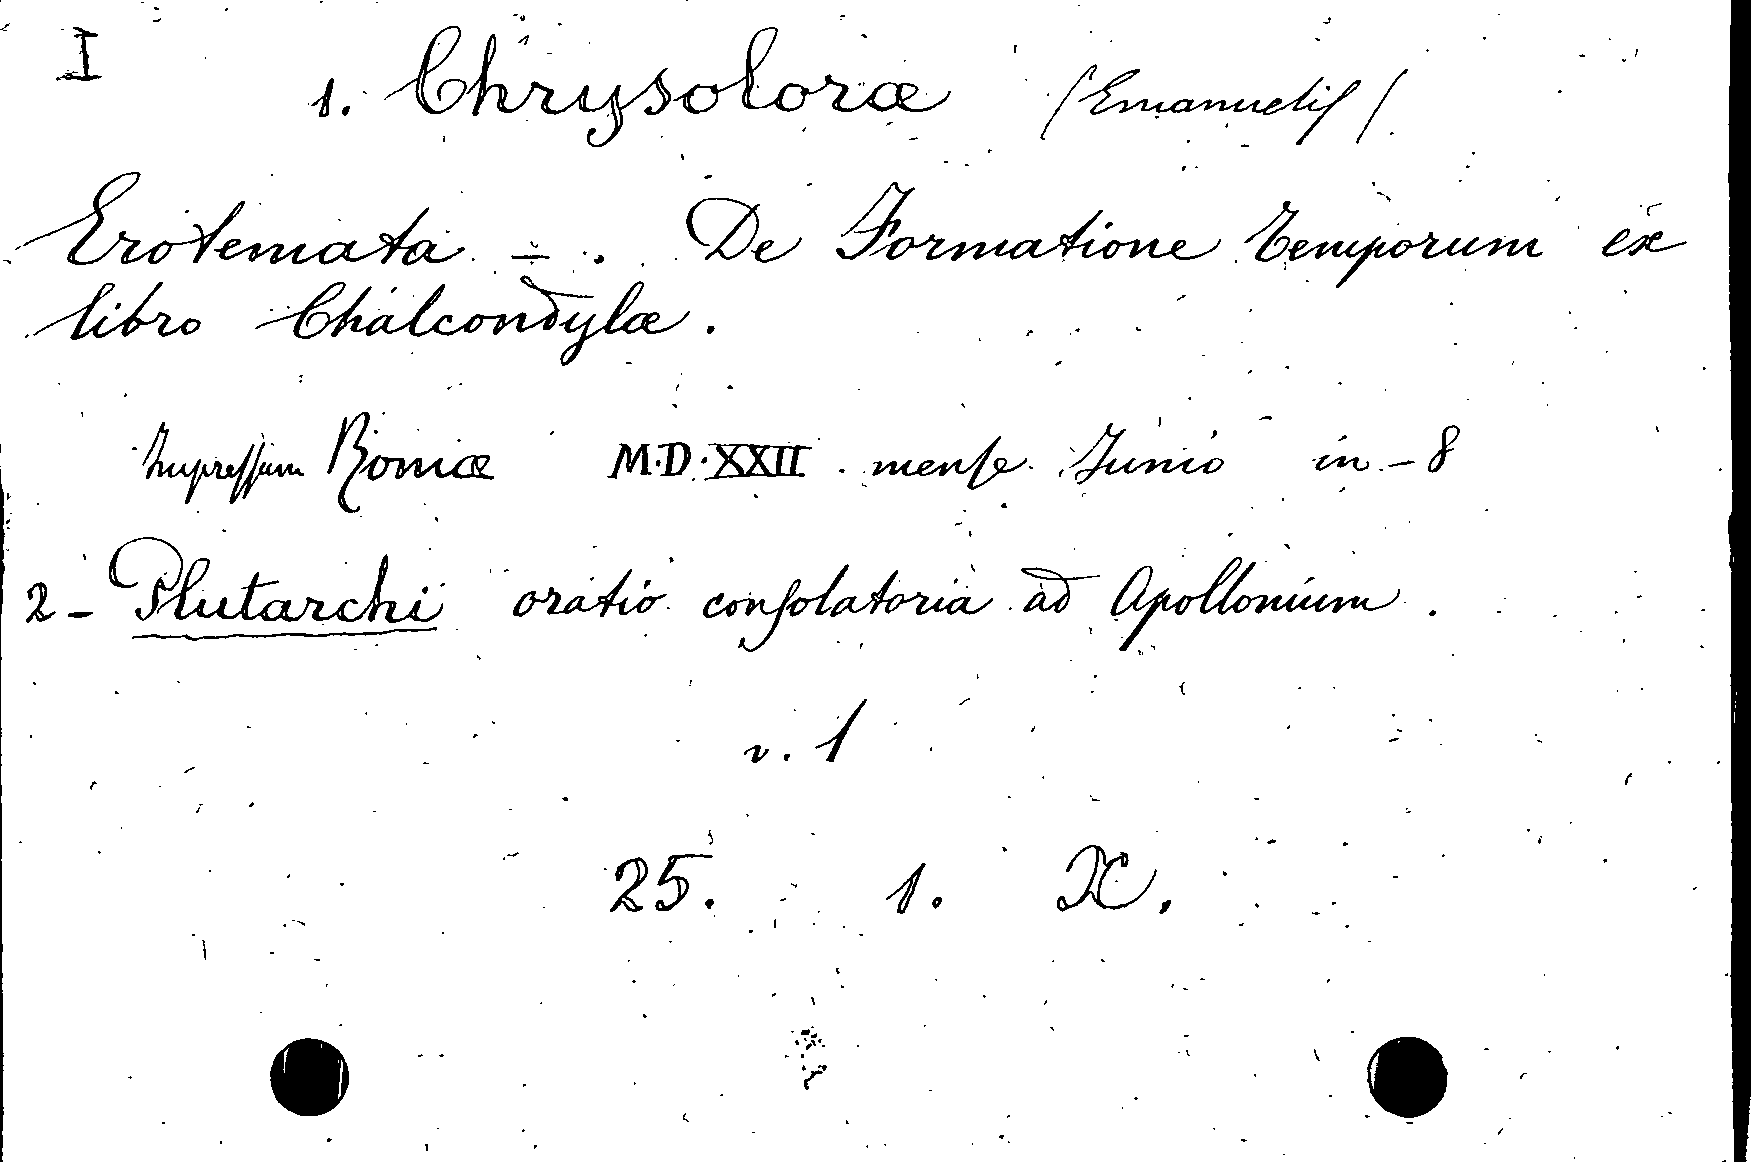 I
1. Chrysoloræ (Emanuelis)
Erotemata - . De Formatione temporum ex
libro Chalcondylæ.
Impressum Romæ M.D.XXII. mense Junio in-8
2- Plutarchi oratio consolatoria ad Apollonium.
v. 1
25. 1. X.